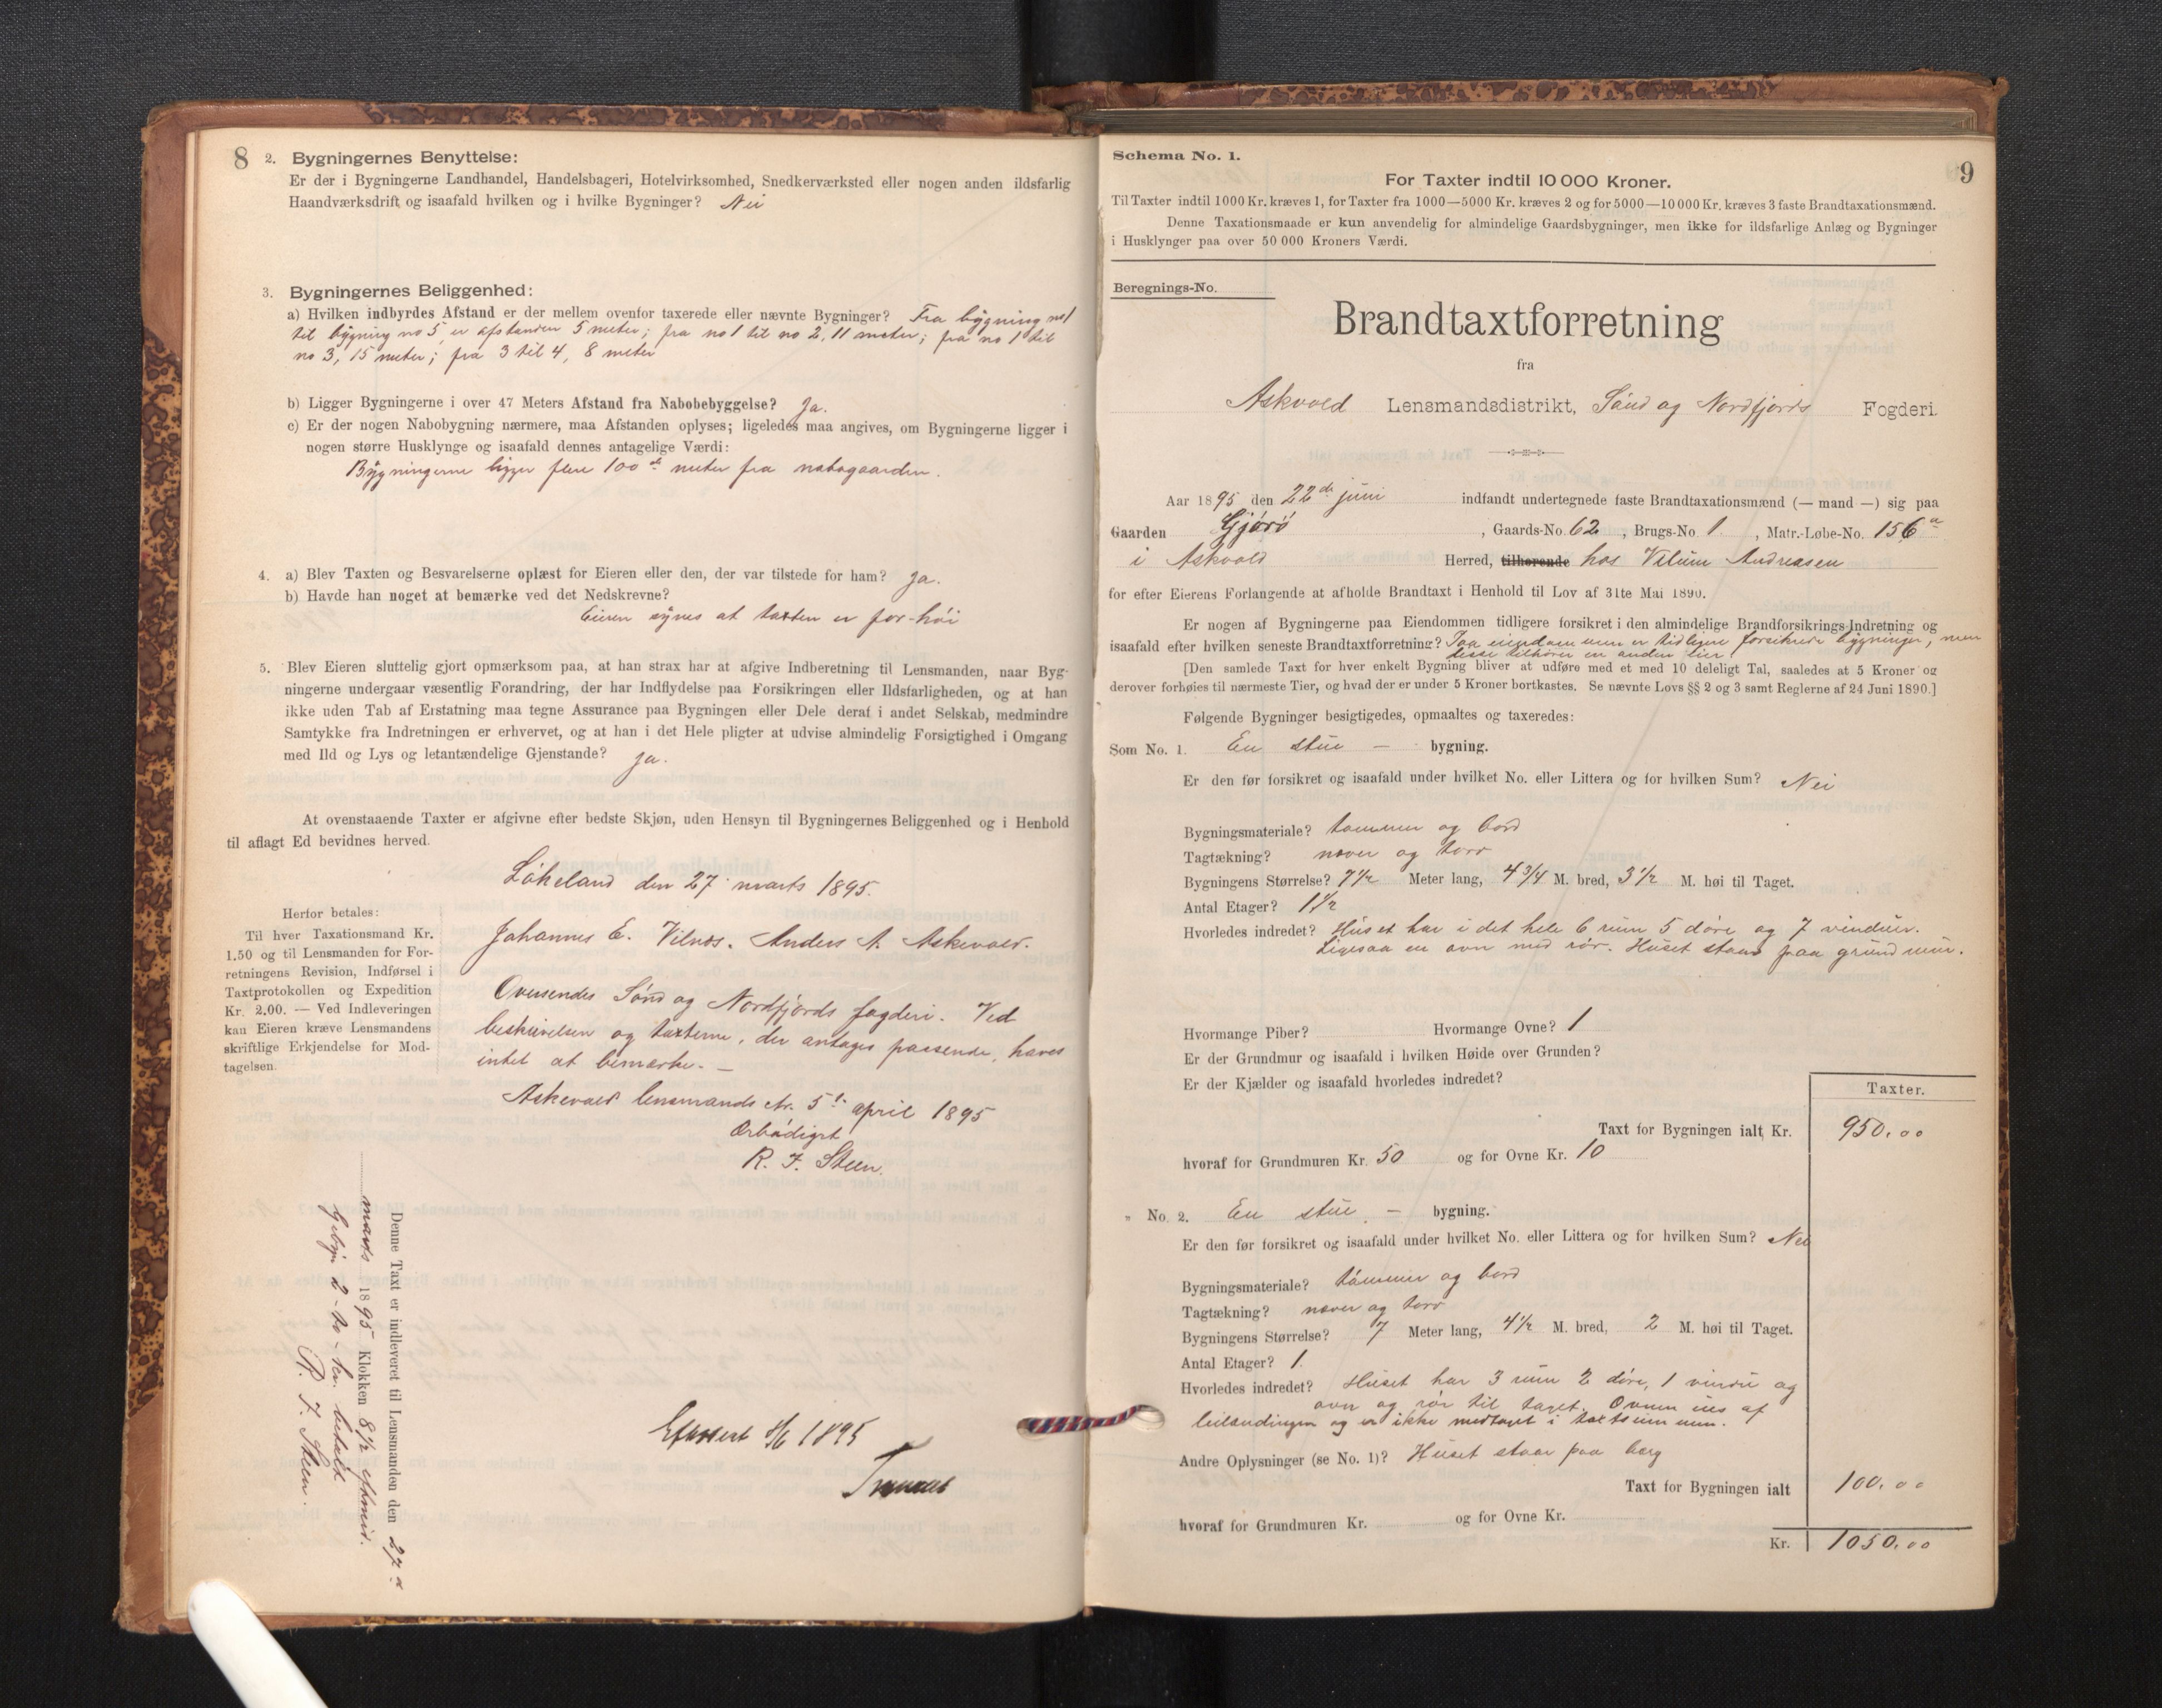 8
2. Bygningernes Benyttelse:
Er der i Bygningerne Landhandel, Handelsbageri, Hotelvirksomhed, Snedkerværksted eller nogen anden ildsfarlig
Haandværksdrift og isaafald hvilken og i hvilke Bygninger? Nei
3. Bygningernes Beliggenhed:
a) Hvilken indbyrdes Afstand er der mellem ovenfor taxerede eller nævnte Bygninger? Fra bygning no 1
til bygning no 5, er afstanden 5 meter; fra no 1 til no 2, 11 meter; fra no 1 til
no 3, 15 meter; fra 3 til 4, 8 meter
b) Ligger Bygningerne i over 47 Meters Afstand fra Nabobebyggelse? Ja.
c) Er der nogen Nabobygning nærmere, maa Afstanden oplyses; ligeledes maa angives, om Bygningerne ligger i
nogen større Husklynge og isaafald dennes antagelige Værdi:
Bygningerne ligger flere 100 de meter fra nabogaarden.
4. a) Blev Taxten og Besvarelserne oplæst for Eieren eller den, der var tilstede for ham? Ja.
b) Havde han noget at bemærke ved det Nedskrevne?
Eieren synes at taxten er for høi
5. Blev Eieren sluttelig gjort opmærksom paa, at han strax har at afgive Indberetning til Lensmanden, naar Byg-
ningerne undergaar væsentlig Forandring, der har Indflydelse paa Forsikringen eller Ildsfarligheden, og at han
ikke uden Tab af Erstatning maa tegne Assurance paa Bygningen eller Dele deraf i andet Selskab, medmindre
Samtykke fra Indretningen er erhvervet, og at han i det Hele pligter at udvise almindelig Forsigtighed i Omgang
med Ild og Lys og letantændelige Gjenstande? Ja.
At ovenstaaende Taxter er afgivne efter bedste Skjøn, uden Hensyn til Bygningernes Beliggenhed og i Henhold
til aflagt Ed bevidnes herved.
Løkeland den 27 marts 1895.
Johannes E. Vilnes. Anders A. Askevold.
Herfor betales:
Til hver Taxationsmand Kr.
1.50 og til Lensmanden for For-
retningens Revision, Indførsel i
Taxtprotokollen og Expedition
Kr. 2.00. — Ved Indleveringen
kan Eieren kræve Lensmandens
skriftlige Erkjendelse for Mod-
tagelsen.
Oversendes Sønd og Nordfjords fogderi. Ved
beskrivelsen og taxterne, der antages passende, haves
intet at bemærke. —
Askevold lensmands ktr. 5t. april 1895
Ærbødigst
R. F. Steen.
Denne Taxt er indleveret til Lensmanden den 27 de
marts 1895 Klokken 8½ eftmid.
Gebyr 2 - to - kr. betalt
R. F. Steen.
1895
9
Schema No. 1.
For Taxter indtil 10 000 Kroner.
Til Taxter indtil 1000 Kr. kræves 1, for Taxter fra 1000—5000 Kr. kræves 2 og for 5000—10 000 Kr. kræves 3 faste Brandtaxationsmænd.
Denne Taxationsmaade er kun anvendelig for almindelige Gaardsbygninger, men ikke for ildsfarlige Anlæg og Bygninger
i Husklynger paa over 50 000 Kroners Værdi.
Beregnings-No.
Brandtaxtforretning
fra
Askvold Lensmandsdistrikt, Sønd og Nordfjords Fogderi.
Aar 1895 den 22de juni indfandt undertegnede faste Brandtaxationsmænd (— mand —) sig paa
Gaarden Gjørø, Gaards-No. 62, Brugs-No. 1, Matr.-Løbe-No. 156 a
i Askvold Herred, tilhørende hos Andreasen
for efter Eierens Forlangende at afholde Brandtaxt i Henhold til Lov af 31te Mai 1890.
Er nogen af Bygningerne paa Eiendommen tidligere forsikret i den almindelige Brandforsikrings-Indretning og
isaafald efter hvilken seneste Brandtaxtforretning? Paa eiendommen er tidligere forsikrede bygninger, men
disse tilhører en anden eier
[Den samlede Taxt for hver enkelt Bygning bliver at udføre med et med 10 deleligt Tal, saaledes at 5 Kroner og
derover forhøies til nærmeste Tier, og hvad der er under 5 Kroner bortkastes. Se nævnte Lovs §§ 2 og 3 samt Reglerne af 24 Juni 1890.]
Følgende Bygninger besigtigedes, opmaaltes og taxeredes:
Som No. 1. En stue — bygning.
Er den før forsikret og isaafald under hvilket No. eller Littera og for hvilken Sum? Nei
Bygningsmateriale? tømmer og bord
Tagtækning? never og torv
Bygningens Størrelse? 7½ Meter lang, 4¾ M. bred, 3½ M. høi til Taget.
Antal Etager? 1½
Hvorledes indredet? Huset har i det hele 6 rum 5 døre og 7 vinduer.
Ligesaa en ovn med rør. Huset staar paa grundmur.
Hvormange Piber? Hvormange Ovne? 1
Er der Grundmur og isaafald i hvilken Høide over Grunden?
Er der Kjælder og isaafald hvorledes indredet?
Taxter.
Taxt for Bygningen ialt Kr. 950.00
hvoraf for Grundmuren Kr. 50 og for Ovne Kr. 10
" No. 2. En stue — bygning.
Er den før forsikret og isaafald under hvilket No. eller Littera og for hvilken Sum? Nei
Bygningsmateriale? tømmer og bord
Tagtækning? never og torv
Bygningens Størrelse? 7 Meter lang, 4½ M. bred, 2 M. høi til Taget.
Antal Etager? 1.
Hvorledes indredet? Huset har 3 rum 2 døre, 1 vindu og
ovn og rør til taget. Ovnen eies af
leilændingen og er ikke medtaget i taxtsummen.
Andre Oplysninger (se No. 1)? Huset staar paa berg
Taxt for Bygningen ialt 100.00
hvoraf for Grundmuren Kr. og for Ovne Kr.
Kr. 1050.00